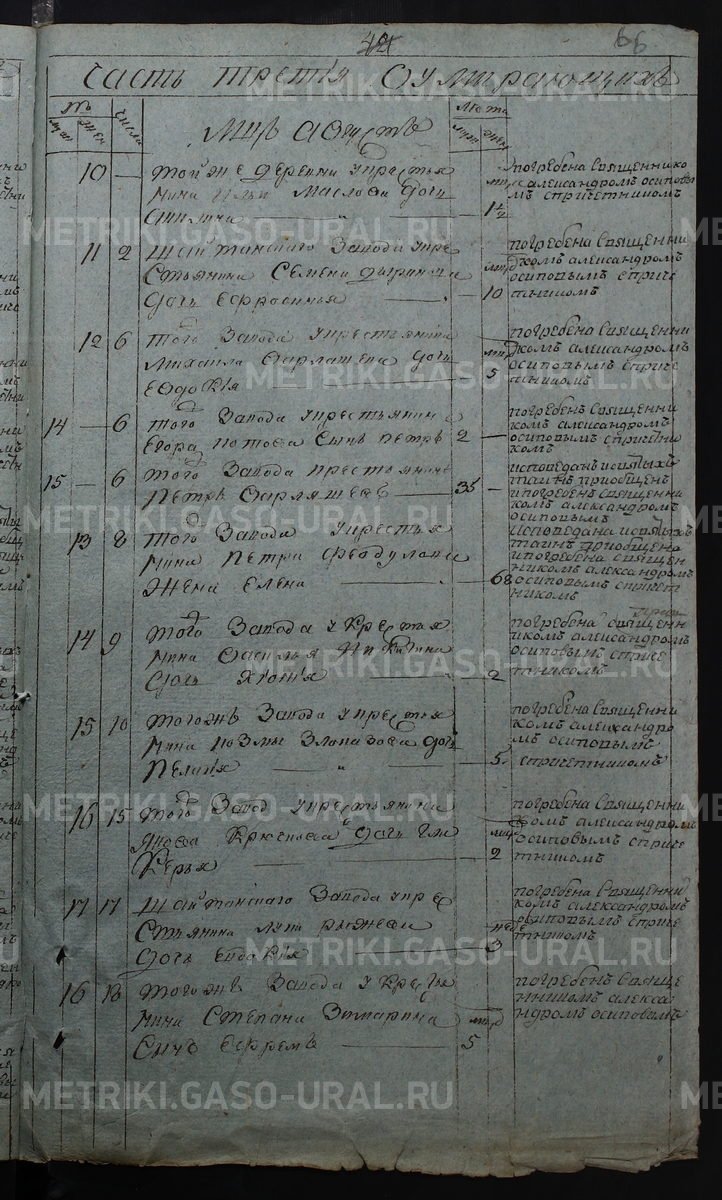 66
часть третiя о умирающихъ
№
муж жен числа
лѣта
муж жен
10 — той же деревни у крестья
нина Ильи Маслова дочь
1½
погребена священнико
мъ александромъ осиповы
мъ с причетникомъ
11 2 Шайтанскаго завода у кре
стьянина Семена дочь Ефросинья — 10
погребена священни
комъ александромъ
осиповымъ с приче
тникомъ
12 6 того завода у крестьянина
Михаила дочь
Евдокiя 5
погребена священни
комъ александромъ
осиповымъ с приче
тникомъ
14 — 6 того завода у крестьянина
Егора сынъ петръ 2 —
погребенъ священни
комъ александромъ
осиповымъ с причетни
комъ
15 — 6 того завода крестьянинъ
Петръ — 35 —
исповеданъ и святыхъ
таинъ приобщенъ
и погребенъ священни
комъ александромъ
осиповымъ
13 8 того завода у крестья
нина Петра Федулова
жена Елена — 68
исповедана и святыхъ
таинъ приобщена
и погребена священ
никомъ александромъ
осиповымъ с причет
никомъ
14 9 того завода у крестья
нина Василья Никитина
дочь — 2
погребена священ
никомъ александромъ
осиповымъ с приче
тникомъ
15 10 того жъ завода у крестья
нина козмы Злоказова дочь
Пелагiя — 5
погребена священни
комъ александро
мъ осиповымъ
с причетникомъ
16 15 того завода у крестьянина
Якова дочь Гли
керья — 2
погребена священни
комъ александромъ
осиповымъ с приче
тникомъ
17 17 Шайтанскаго завода у кре
стьянина луки рыжева
дочь Евдокiя — 3
погребена священни
комъ александромъ
осиповымъ с приче
тникомъ
16 18 того жъ завода у кресть
нина Степана
сынъ Ефремъ — 5
погребенъ священ
никомъ алекса
ндромъ осиповымъ
METRIKI.GASO-URAL.RU